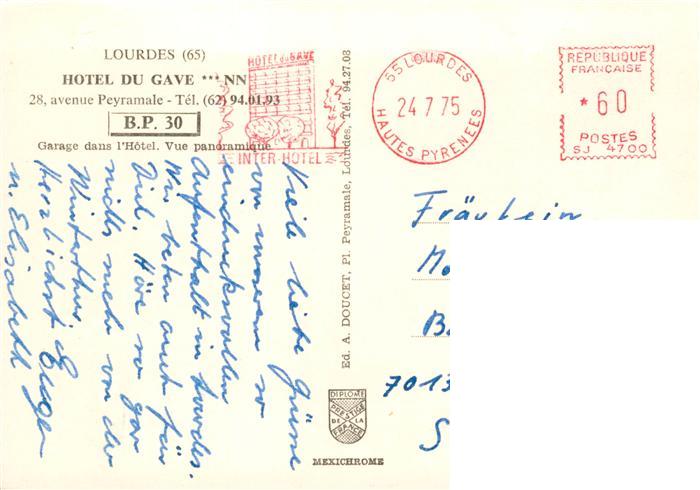 LOURDES (65)
HOTEL DU GAVE *** NN
28, avenue Peyramale - Tél. (62) 94.01.93
B.P. 30
Garage dans l'Hôtel. Vue panoramique
HÔTEL du GAVE
INTER-HÔTEL
65 LOURDES
24 7 75
HAUTES PYRENEES
REPUBLIQUE
FRANCAISE
* 60
POSTES
SJ 4700
Viele liebe Grüsse
von unserem so
eindrucksvollen
Aufenthalt in Lourdes.
Wir beten auch für
Dich. Höre so gar
nichts mehr von der
Winterthur
Herzlichst
u. Elisabeth
Ed. A. DOUCET, Pl. Peyramale, Lourdes, Tél. 94.27.08
Fräulein
Mo
B.
7013
S
DIPLOME
PRESTIGE
DE LA
FRANCE
MEXICHROME